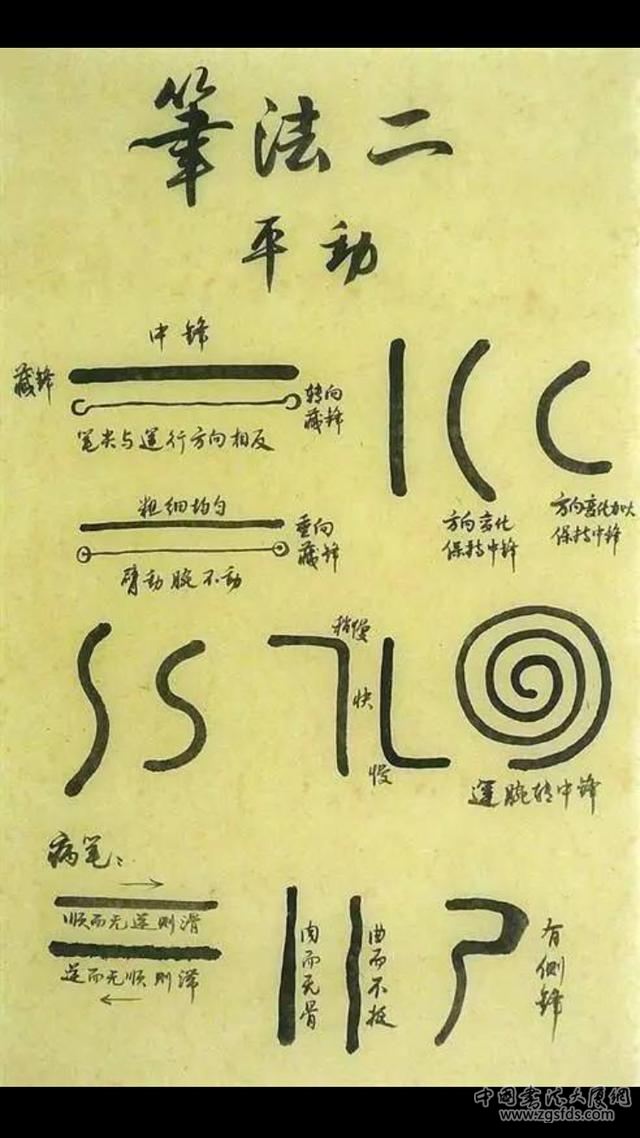 筆法二
平動
中锋
藏锋
转向
藏锋
笔尖与运行方向相反
粗细均匀
垂向
藏锋
臂动腕不动
方向变化
保持中锋
方向变化加大
保持中锋
稍慢
快
慢
运腕转中锋
病笔：
顺而无逆则滑
逆而无顺则滞
肉而无骨
曲而不挺
有侧锋
中国书法大厦网
www.zgsfds.com